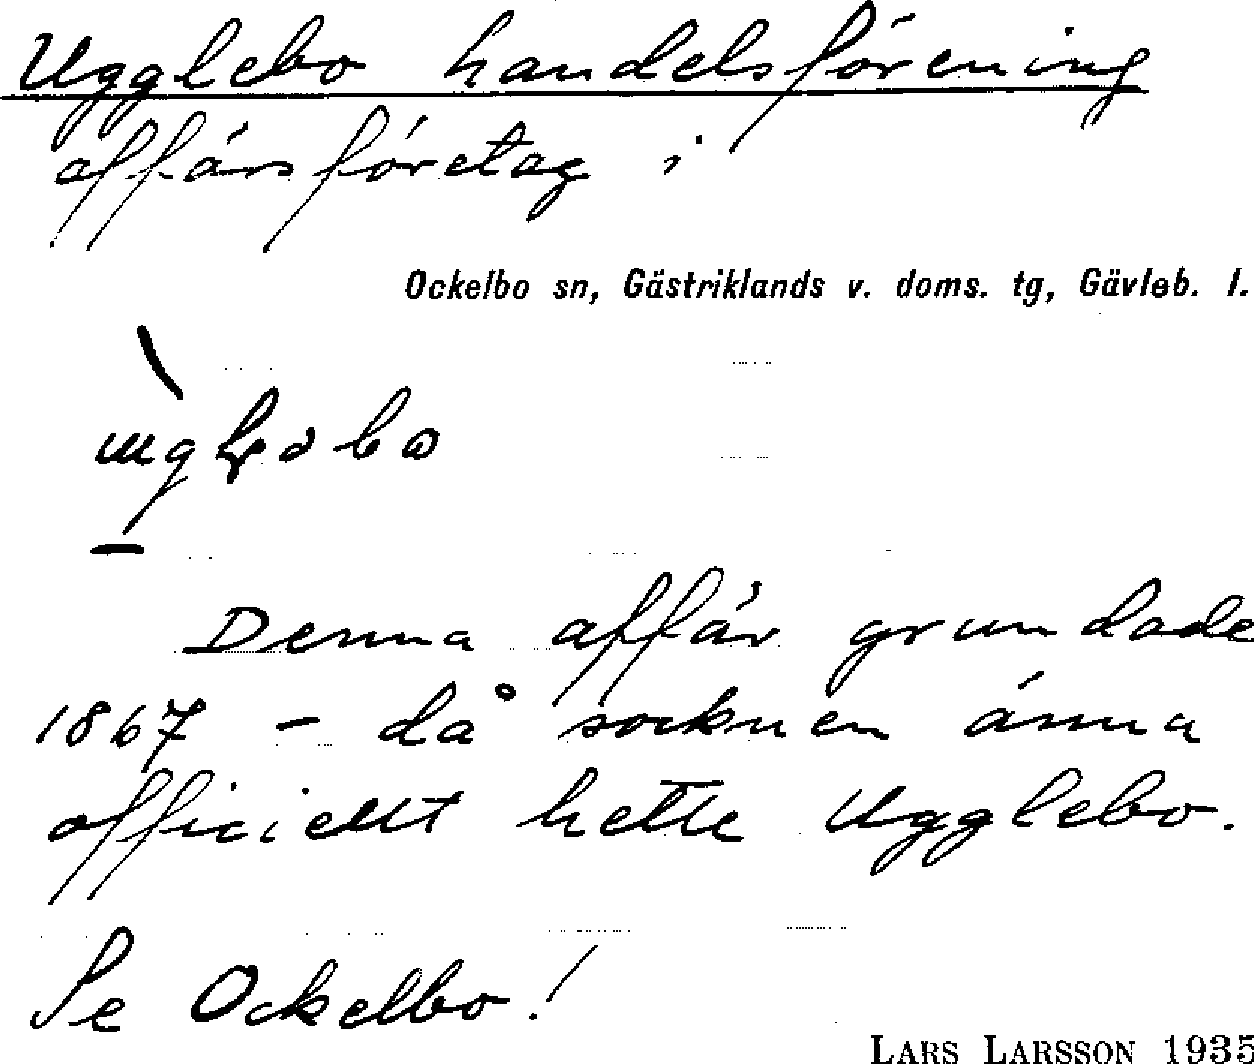 Ugglebo handelsförening
affärsföretag i
Ockelbo sn, Gästriklands v. doms. tg, Gävleb. l.
Denna affär grundade
1867 - då socknen änna
officiellt hette Ugglebo.
Se Ockelbo!
LARS LARSSON 1935